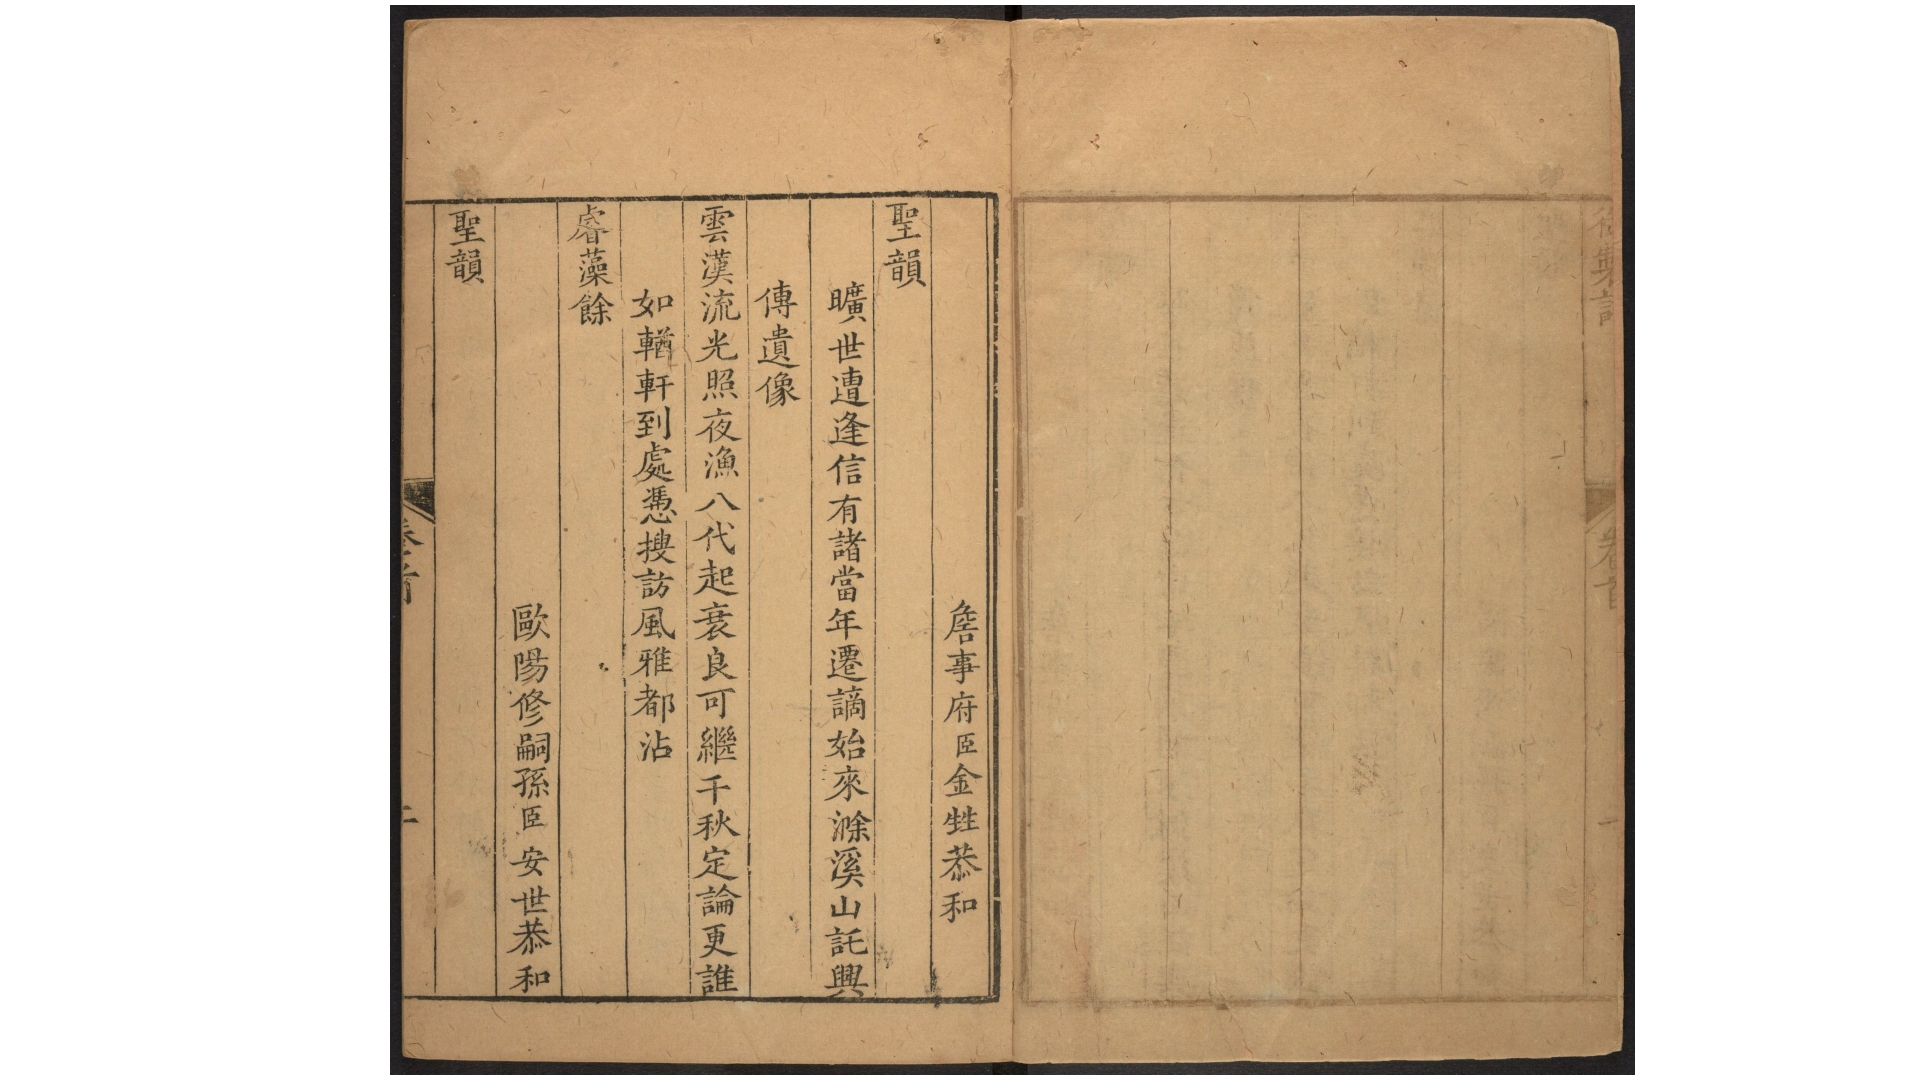 御製詩
卷首
一
詹事府臣金甡恭和
聖韻
曠世遭逢信有諸當年遷謫始來滁溪山託興
傳遺像
雲漢流光照夜漁八代起衰良可繼千秋定論更誰
如輶軒到處憑搜訪風雅都沾
睿藻餘
歐陽修嗣孫臣安世恭和
聖韻
卷首
二